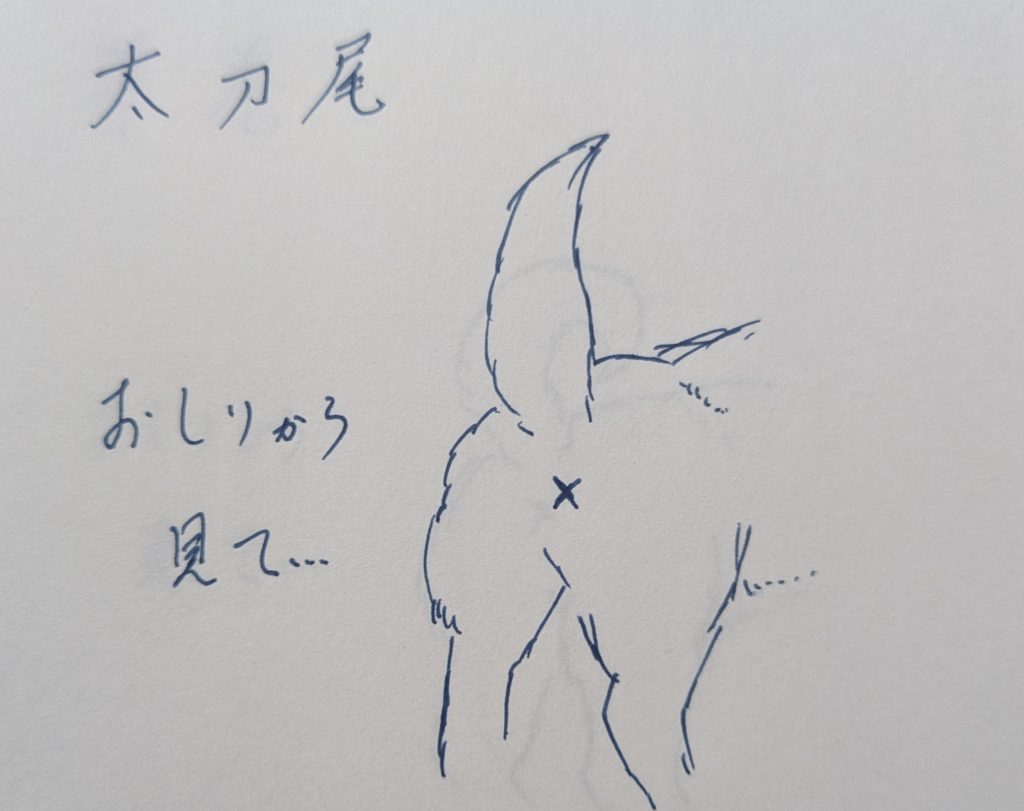 太刀尾
おしりから
見て…